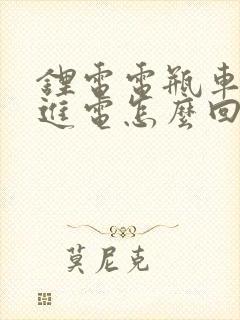 鋰電電瓶車
進電怎麼回
莫尼克